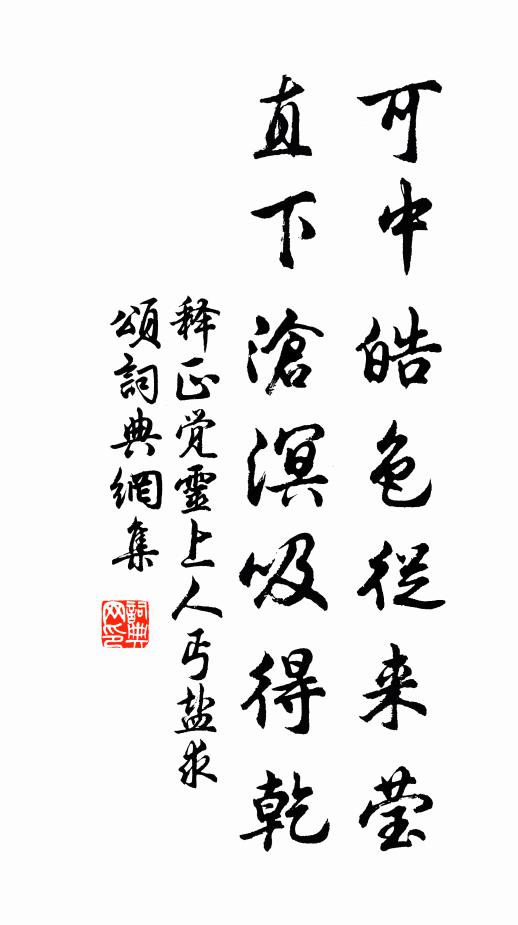 可中皓色従来莹
直下滄溟吸得乾
释正覚靈上人丐盐求
頌詞典網集
詞典
网印